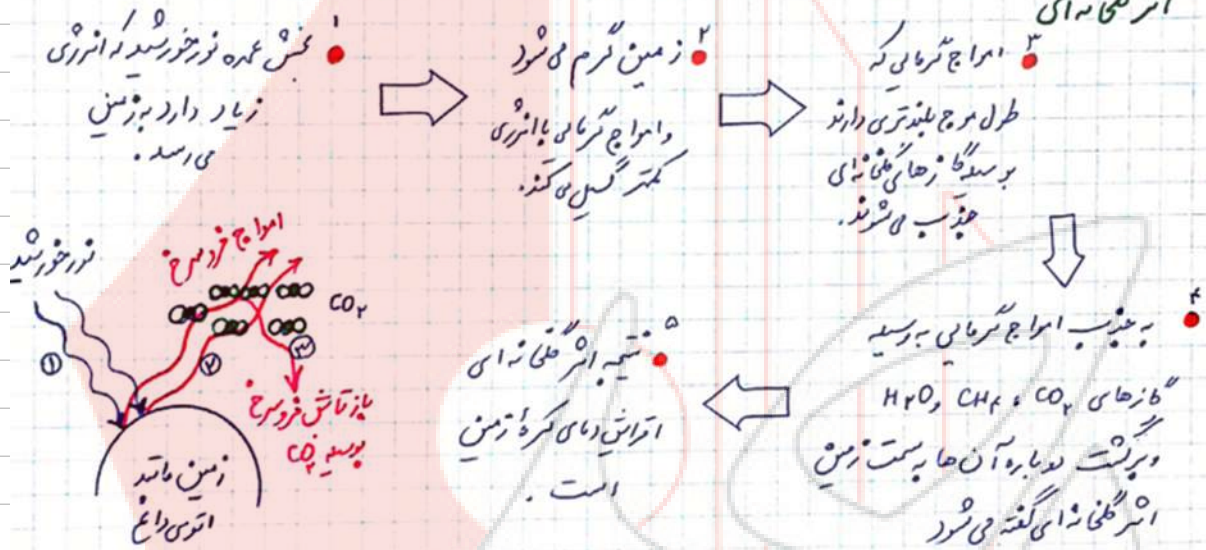 اثر گلخانه‌ای
۱
بخش عمده نور خورشید که انرژی
زیاد دارد به زمین
می‌رسد.
۲
زمین گرم می‌شود
و امواج گرمایی با انرژی
کمتر گسیل می‌کند.
۳
امواج گرمایی که
طول موج بلندتری دارند
بوسیله گازهای گلخانه‌ای
جذب می‌شوند.
۴
به جذب امواج گرمایی به وسیله
گازهای CO۲ ، CH۴ و H۲O
و برگشت دوباره آن‌ها به سمت زمین
اثر گلخانه‌ای گفته می‌شود
۵
نتیجه اثر گلخانه‌ای
افزایش دمای کرهٔ زمین
است.
نور خورشید
امواج فروسرخ
CO۲
۱
۲
۳
بازتابش فروسرخ
بوسیله CO۲
زمین مانند
اتوی داغ